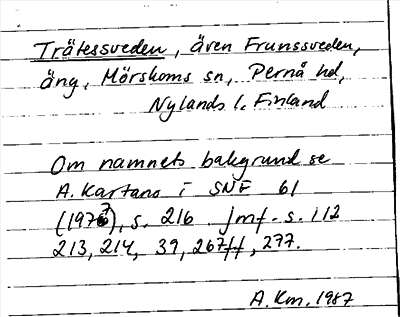 Trätessveden, även Frunssveden,
äng, Mörskoms sn, Pernå hd,
Nylands l. Finland
Om namnets bakgrund se
A. Kartano i SNF 61
(1977), s. 216 jmf. s. 112
213, 214, 39, 267ff, 277.
A. Km. 1987